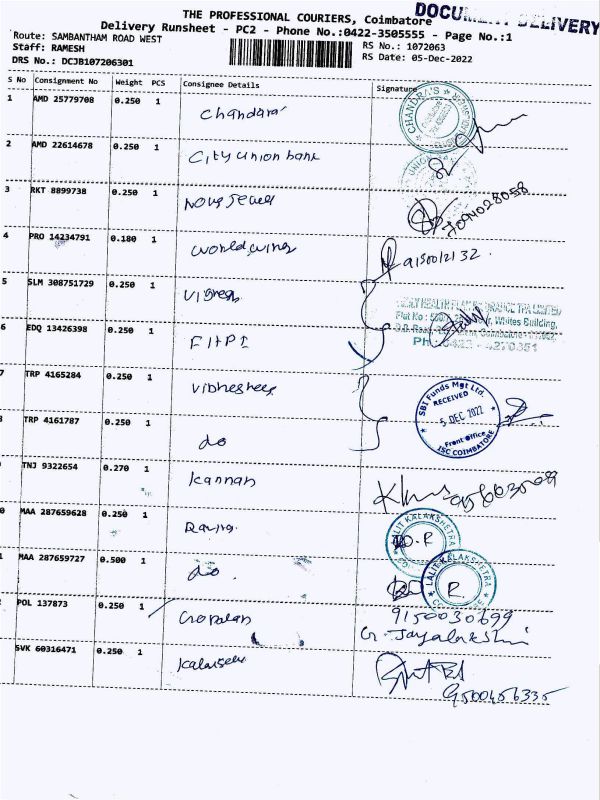 DOCUMENT DELIVERY
THE PROFESSIONAL COURIERS, Coimbatore
Delivery Runsheet - PC2 - Phone No.:0422-3505555 - Page No.:1
Route: SAMBANTHAM ROAD WEST
RS No.: 1072063
Staff: RAMESH
RS Date: 05-Dec-2022
DRS No.: DCJB107206301
S No Consignment No Weight PCS Consignee Details Signature
1 AMD 25779708 0.250 1 Chandara
CHANDRA'S
2 AMD 22614678 0.250 1 City union bank
UNION
3 RKT 8899738 0.250 1
4 PRO 14234791 0.180 1 world wing
9150012132.
5 SLM 308751729 0.250 1
Whites Building,
6 EDQ 13426398 0.250 1 FIHPI
Ph: 0422 - 4270351
7 TRP 4165284 0.250 1
SBI Funds Mgt Ltd.
RECEIVED
5 DEC 2022
Front Office
ISC COIMBATORE
TRP 4161787 0.250 1 do
TNJ 9322654 0.270 1 Kannan
0 MAA 287659628 0.250 1
LALIT KALAKSHETRA
R
1 MAA 287659727 0.500 1 do.
LALIT KALAKSHETRA
R
2 POL 137873 0.250 1 Gopalan
9150030699
G. Jayalakshmi
SVK 60316471 0.250 1 Kalaiselvi
9500456335